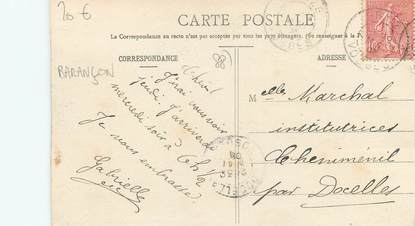 20 €
CARTE POSTALE
La Correspondance au recto n'est pas acceptée par tous les pays étrangers. (Se renseigner à la Poste)
CORRESPONDANCE
ADRESSE
BARANÇON
J'irai vous voir
jeudi, j'arriverai
mercredi soir à 6h 1/2
Je vous embrasse.
Gabrielle
Melle Marchal
institutrices
Cheniménil
par Docelles
DOCELLES